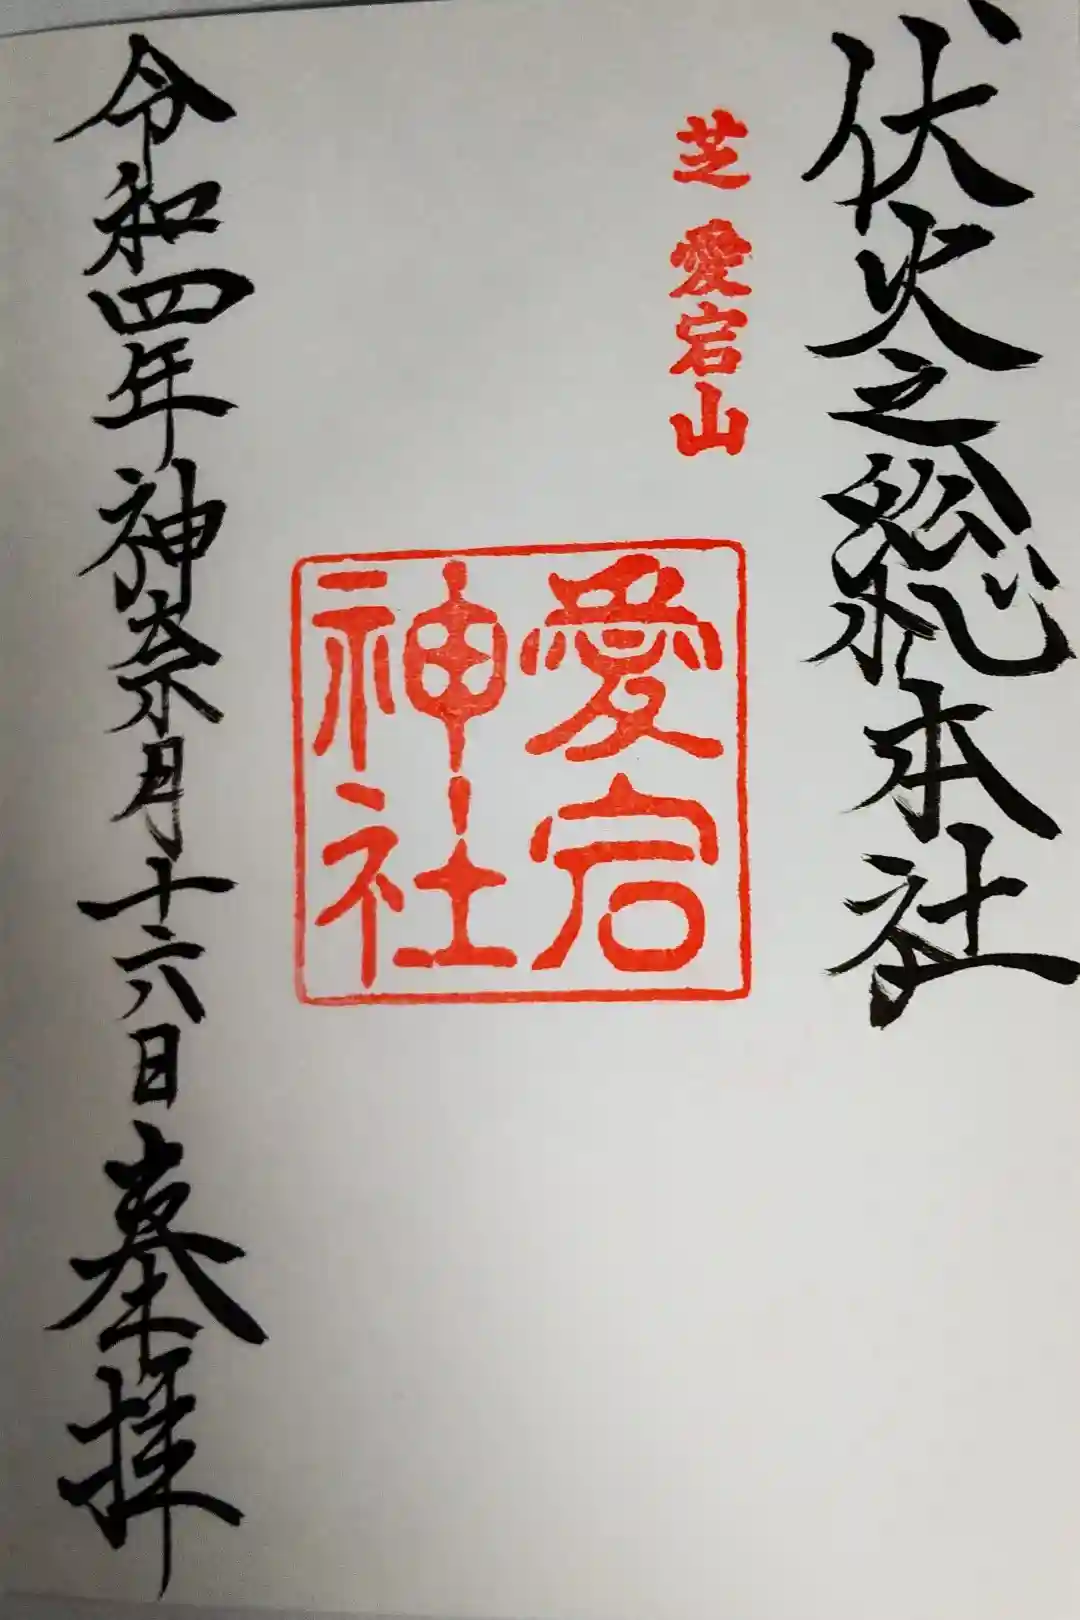 伏火之総本社
芝 愛宕山
愛宕
神社
令和四年神奈月十六日 奉拝